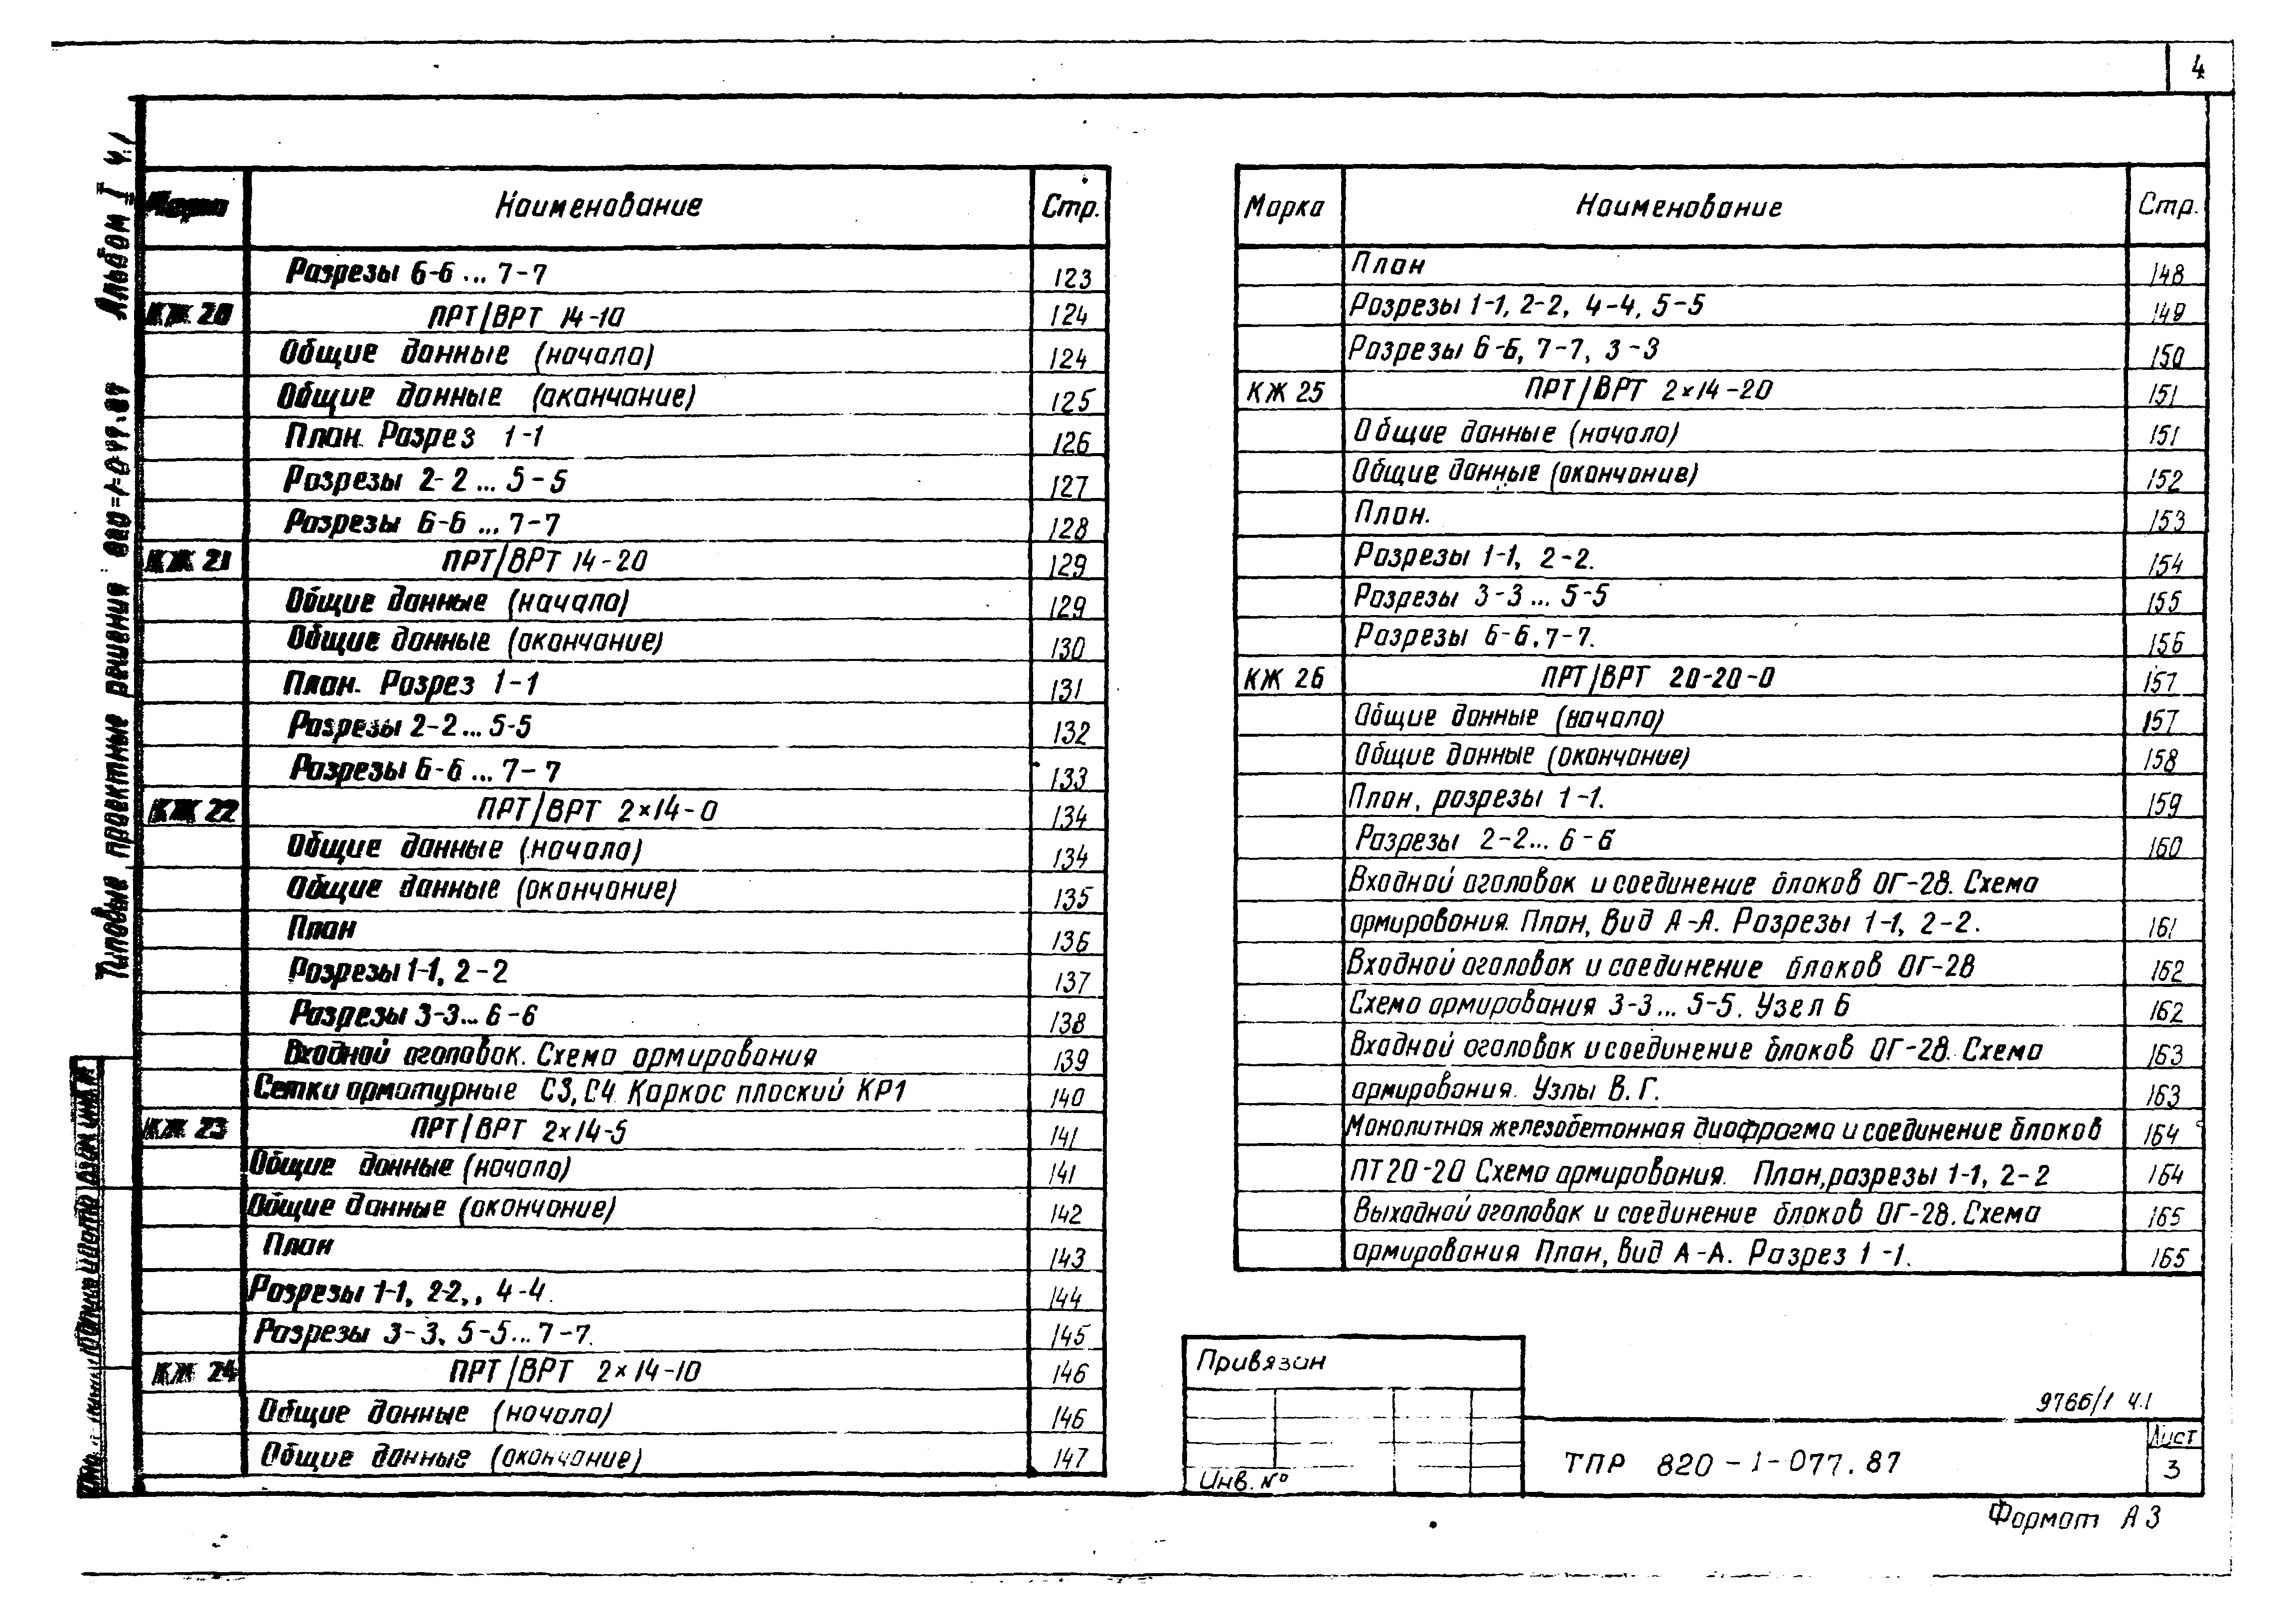 4
Альбом I ч.1
Типовые проектные решения 820-1-077.87
Марка Наименование Стр.
Разрезы 6-6 ... 7-7 123
КЖ 20 ПРТ/ВРТ 14-10 124
Общие данные (начало) 124
Общие данные (окончание) 125
План. Разрез 1-1 126
Разрезы 2-2 ... 5-5 127
Разрезы 6-6 ... 7-7 128
КЖ 21 ПРТ/ВРТ 14-20 129
Общие данные (начало) 129
Общие данные (окончание) 130
План. Разрез 1-1 131
Разрезы 2-2 ... 5-5 132
Разрезы 6-6 ... 7-7 133
КЖ 22 ПРТ/ВРТ 2×14-0 134
Общие данные (начало) 134
Общие данные (окончание) 135
План 136
Разрезы 1-1, 2-2 137
Разрезы 3-3... 6-6 138
Входной оголовок. Схема армирования 139
Сетки арматурные С3, С4 Каркас плоский КР1 140
КЖ 23 ПРТ/ВРТ 2×14-5 141
Общие данные (начало) 141
Общие данные (окончание) 142
План 143
Разрезы 1-1, 2-2,, 4-4. 144
Разрезы 3-3, 5-5...7-7. 145
КЖ 24 ПРТ/ВРТ 2×14-10 146
Общие данные (начало) 146
Общие данные (окончание) 147
Марка Наименование Стр.
План 148
Разрезы 1-1, 2-2, 4-4, 5-5 149
Разрезы 6-6, 7-7, 3-3 150
КЖ 25 ПРТ/ВРТ 2×14-20 151
Общие данные (начало) 151
Общие данные (окончание) 152
План. 153
Разрезы 1-1, 2-2. 154
Разрезы 3-3 ... 5-5 155
Разрезы 6-6, 7-7. 156
КЖ 26 ПРТ/ВРТ 20-20-0 157
Общие данные (начало) 157
Общие данные (окончание) 158
План, разрезы 1-1. 159
Разрезы 2-2... 6-6 160
Входной оголовок и соединение блоков ОГ-28. Схема
армирования. План, Вид А-А. Разрезы 1-1, 2-2. 161
Входной оголовок и соединение блоков ОГ-28 162
Схема армирования 3-3... 5-5. Узел Б 162
Входной оголовок и соединение блоков ОГ-28. Схема 163
армирования. Узлы В. Г. 163
Монолитная железобетонная диафрагма и соединение блоков 164
ПТ20-20 Схема армирования. План, разрезы 1-1, 2-2 164
Выходной оголовок и соединение блоков ОГ-28. Схема 165
армирования План, вид А-А. Разрез 1-1. 165
Привязан
Инв. №
9766/1 ч.1
ТПР 820-1-077.87
Лист
3
Формат А3